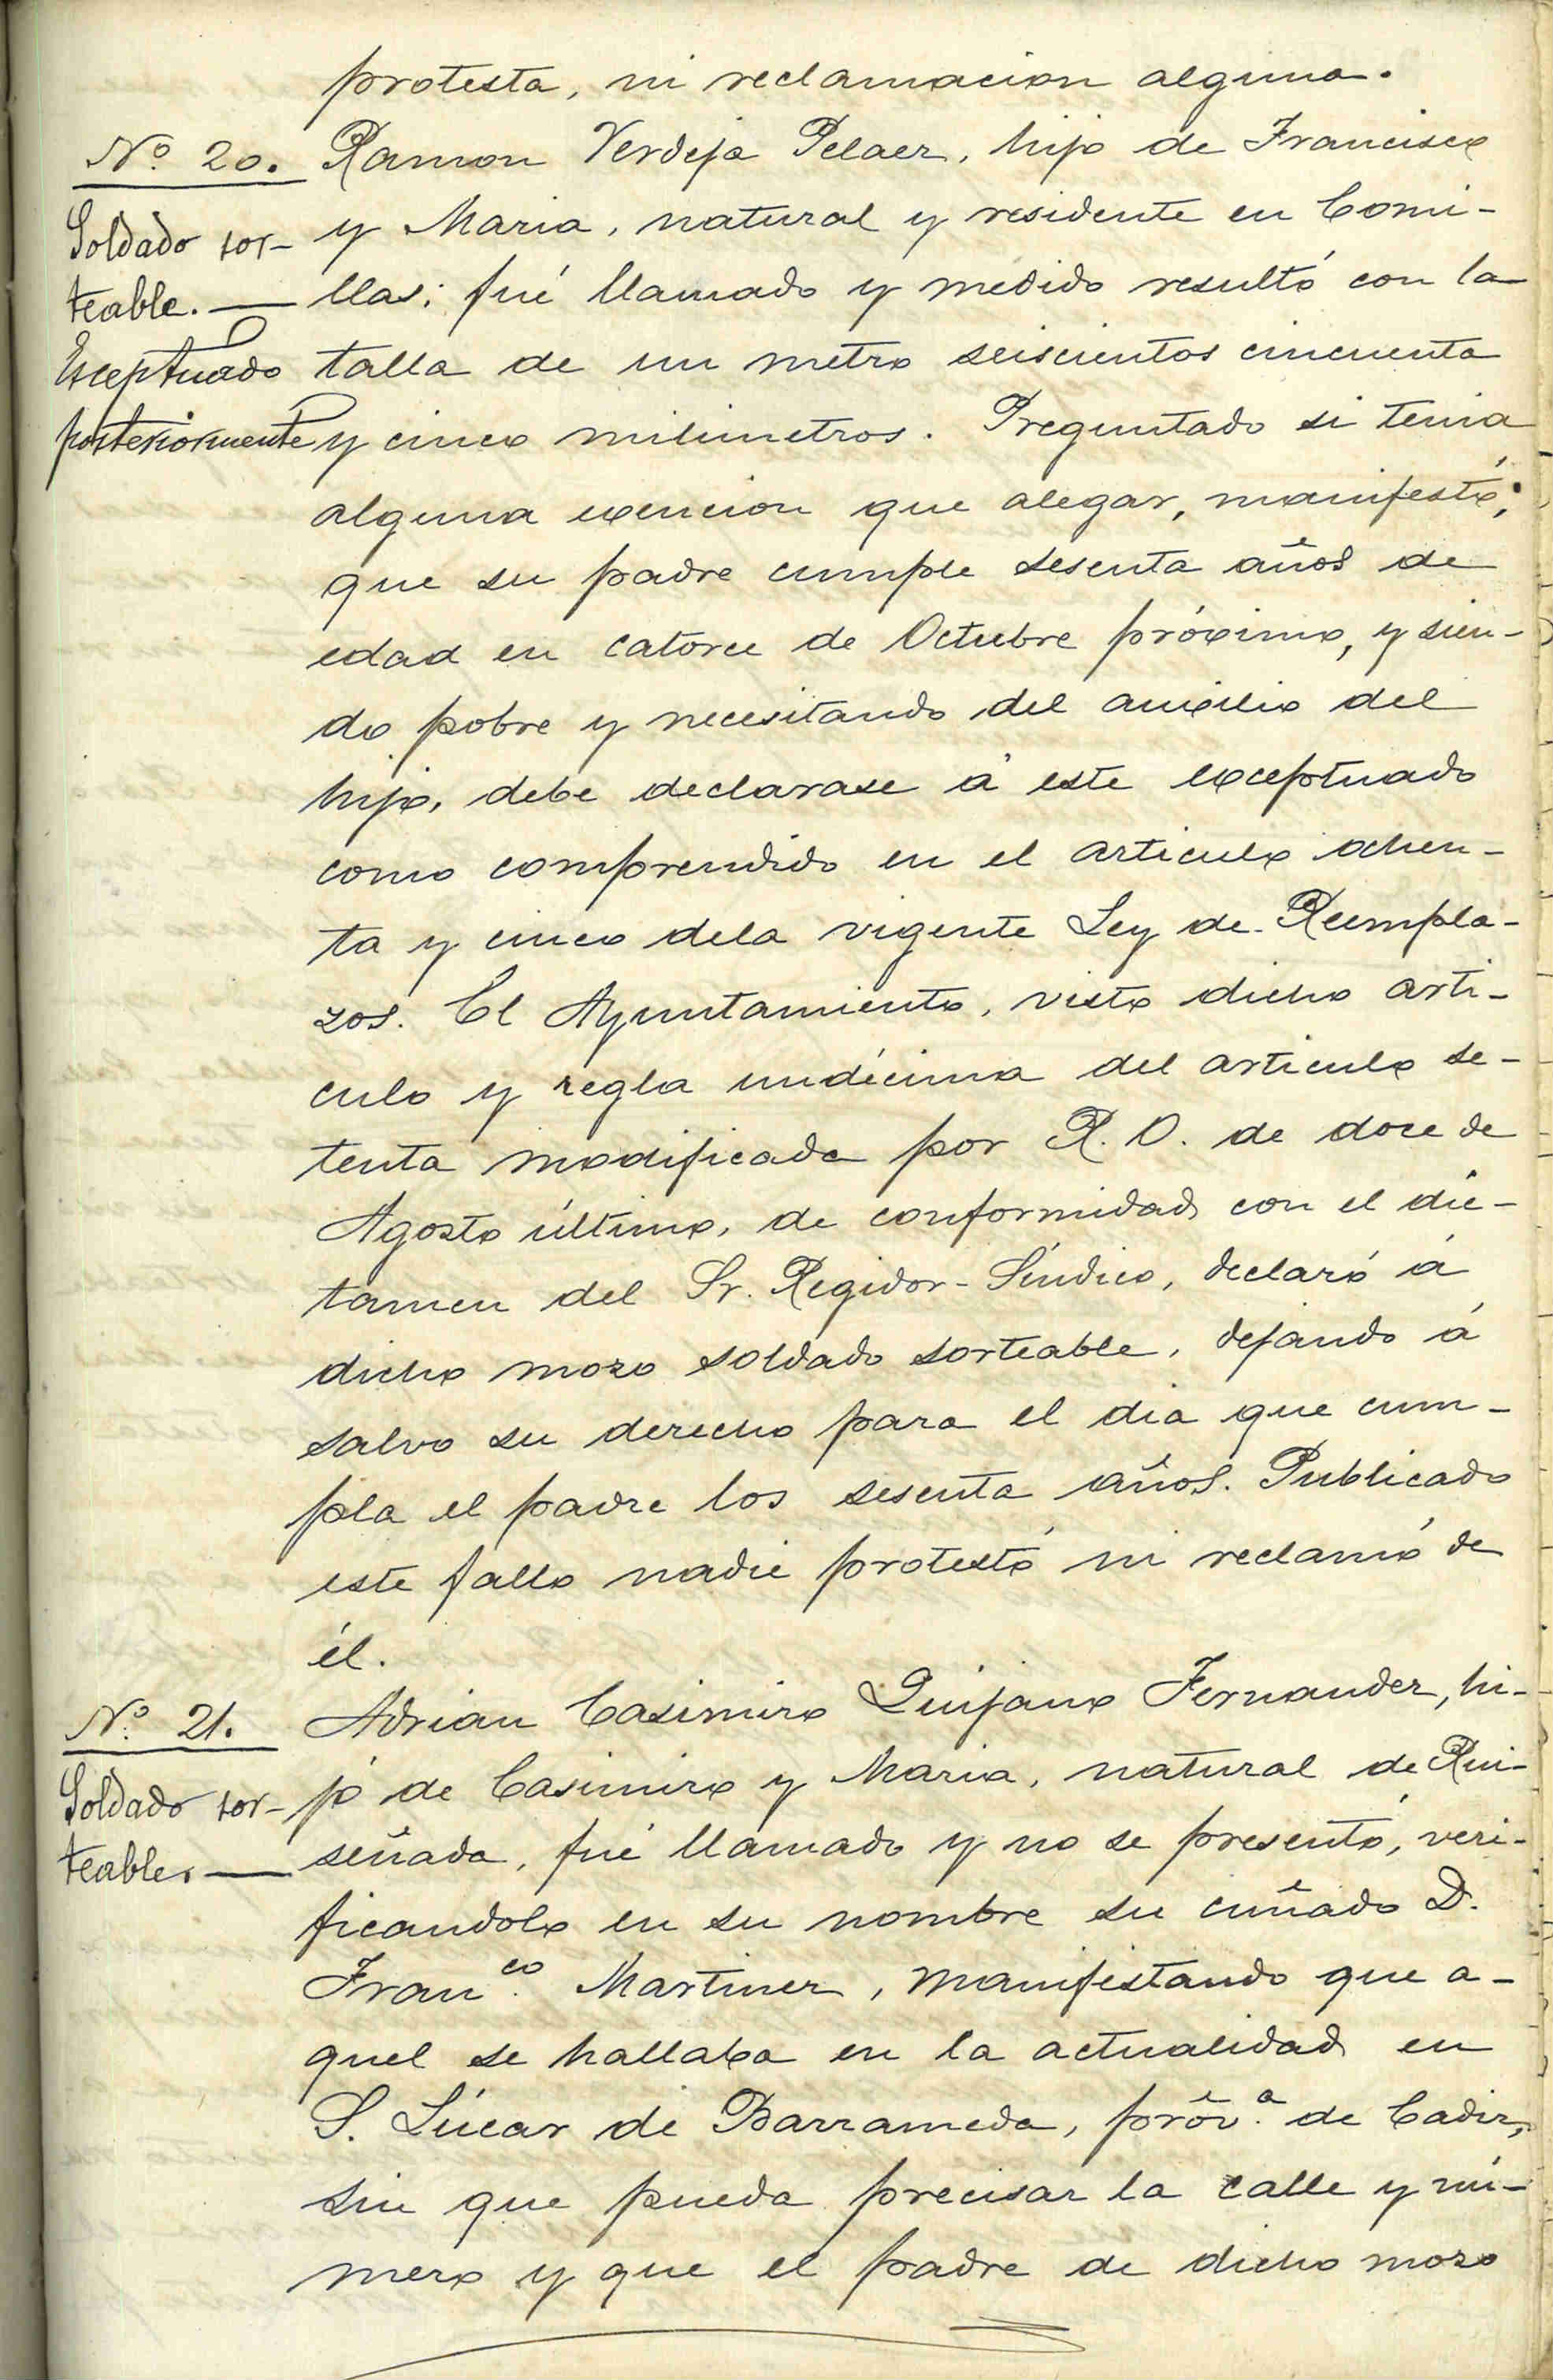 protesta, ni reclamacion alguna.
Nº 20. Ramon Verdeja Pelaez, hijo de Francisco
Soldado sor- y Maria, natural y residente en Comi-
teable. — llas; fué llamado y medido resultó con la
Esceptuado talla de un metro seiscientos cincuenta
posteriormente y cinco milimetros. Preguntado si tenia
alguna exencion que alegar, manifestó;
que su padre cumple sesenta años de
edad en catorce de Octubre próximo, y sien-
do pobre y necesitando del auxilio del
hijo, debe declarase á este exceptuado
como comprendido en el articulo ochen-
ta y cinco dela vigente Ley de Reempla-
zos. El Ayuntamiento, visto dicho arti-
culo y regla undécima del articulo se-
tenta modificada por R. O. de doce de
Agosto último, de conformidad con el dic-
tamen del Sr. Regidor-Síndico, declaró á
dicho mozo soldado sorteable, dejando á
salvo su derecho para el dia que cum-
pla el padre los sesenta años. Publicado
este fallo nadie protestó ni reclamó de
él.
Nº 21. Adrian Casimiro Quijano Fernandez, hi-
Soldado sor- jo de Casimiro y Maria, natural de Rui-
teable. — señada, fué llamado y no se presentó, veri-
ficandolo en su nombre su cuñado D.
Franco. Martinez, manifestando que a-
quel se hallaba en la actualidad en
S. Lúcar de Barrameda, prov.a de Cadiz,
sin que pueda precisar la calle y nú-
mero y que el padre de dicho mozo